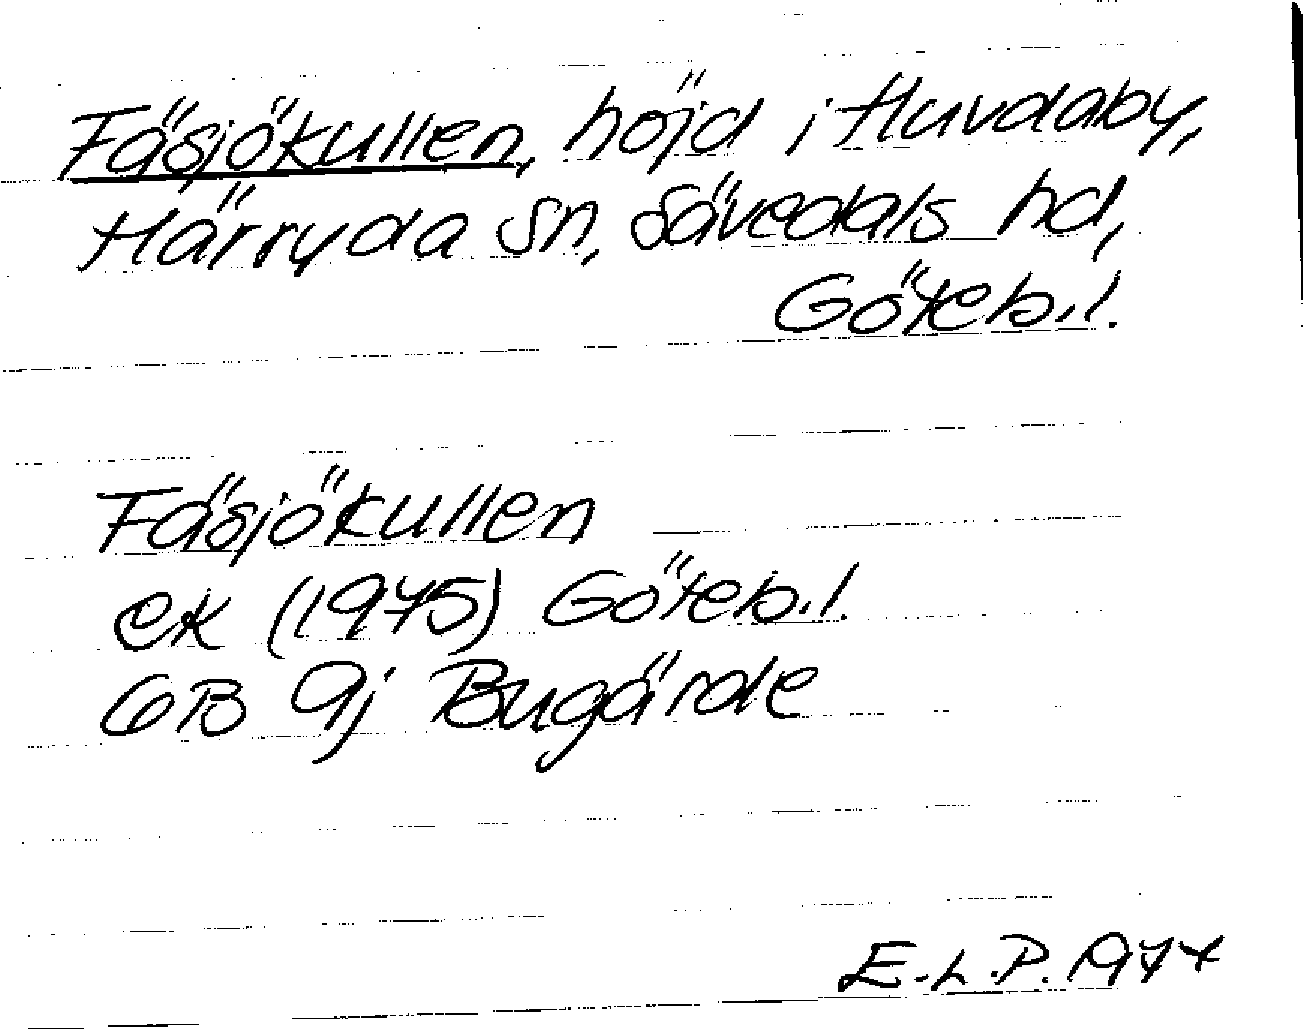 Fäsjökullen, höjd i Huvdaby,
Härryda sn, Sävedals hd,
Göteb.l.
Fäsjökullen
ek (1975) Göteb.l.
6B 9j Bugärde
E.L.P. 1977